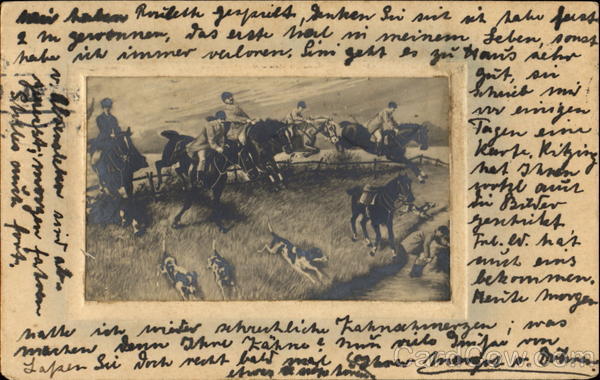 wir haben Roulette gespielt, denken Sie mit ich habe fast
2 M gewonnen, das erste mal in meinem Leben, sonst
habe ich immer verloren. Sini geht es zu Haus sehr
gut, sie
schrieb mir
vor einigen
Tagen eine
Karte. Kitzing
hat Ihnen
wohl auch
die Bilder
geschickt,
Frl. Ld. hat
auch eins
bekommen.
Heute Morgen
hatte ich wieder schreckliche Zahnschmerzen; was
machen denn Ihre Zähne? Nun viele Grüße von
Lassen Sie doch recht bald mal Ihrer Margot v.
etwas
v. sind ab-
gereist, morgen fahren
auch fort.
CardCow.com